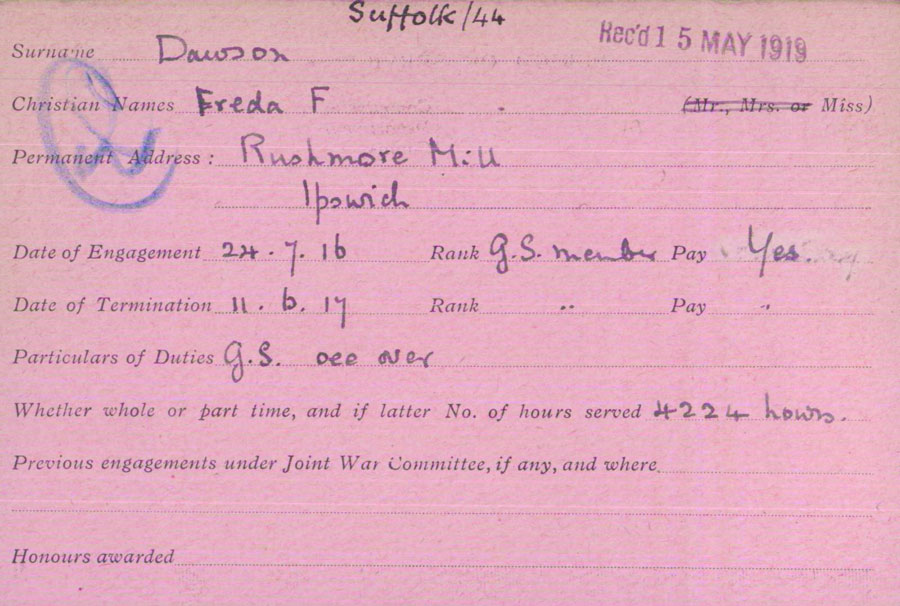 Suffolk/44
Rec'd 15 MAY 1919
Surname Dawson
Christian Names Freda F (Mr., Mrs. or Miss)
Permanent Address: Rushmore Mill
Ipswich
Date of Engagement 24.7.16 Rank G.S. member Pay Yes.
Date of Termination 11.6.17 Rank " Pay "
Particulars of Duties G.S. see over
Whether whole or part time, and if latter No. of hours served 4224 hours.
Previous engagements under Joint War Committee, if any, and where
Honours awarded